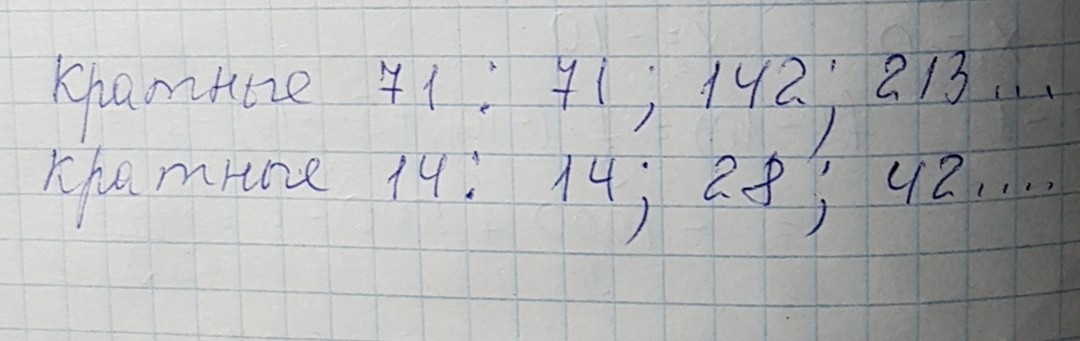 Кратные 71: 71; 142; 213...
Кратные 14: 14; 28; 42....